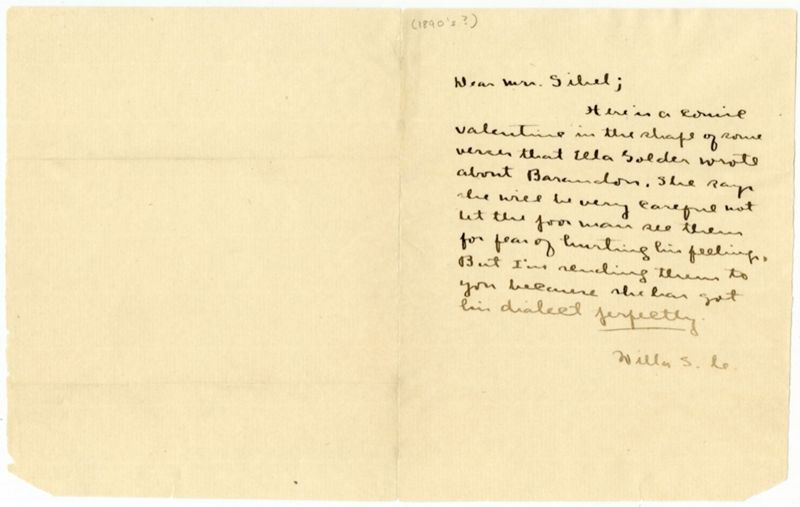 (1890's?)
Dear Mrs. Sibel;
Here is a comic
valentine in the shape of some
verses that Ella Golder wrote
about Barandon. She says
she will be very careful not
let the poor man see them
for fear of hurting his feelings.
But I'm sending them to
you because she has got
his dialect perfectly.
Willa S. C.